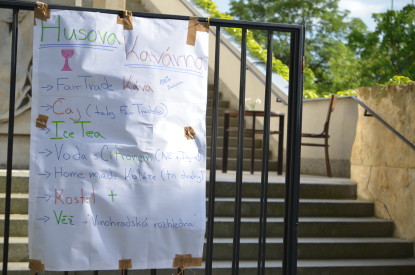 Husova
Kavárna
→ Fair Trade Káva
→ Čaj (taky Fair Trade)
→ Ice Tea
→ Voda s Citronem
→ Home made Koláče
→ Kostel +
→ Věž - Vinohradská rozhledna